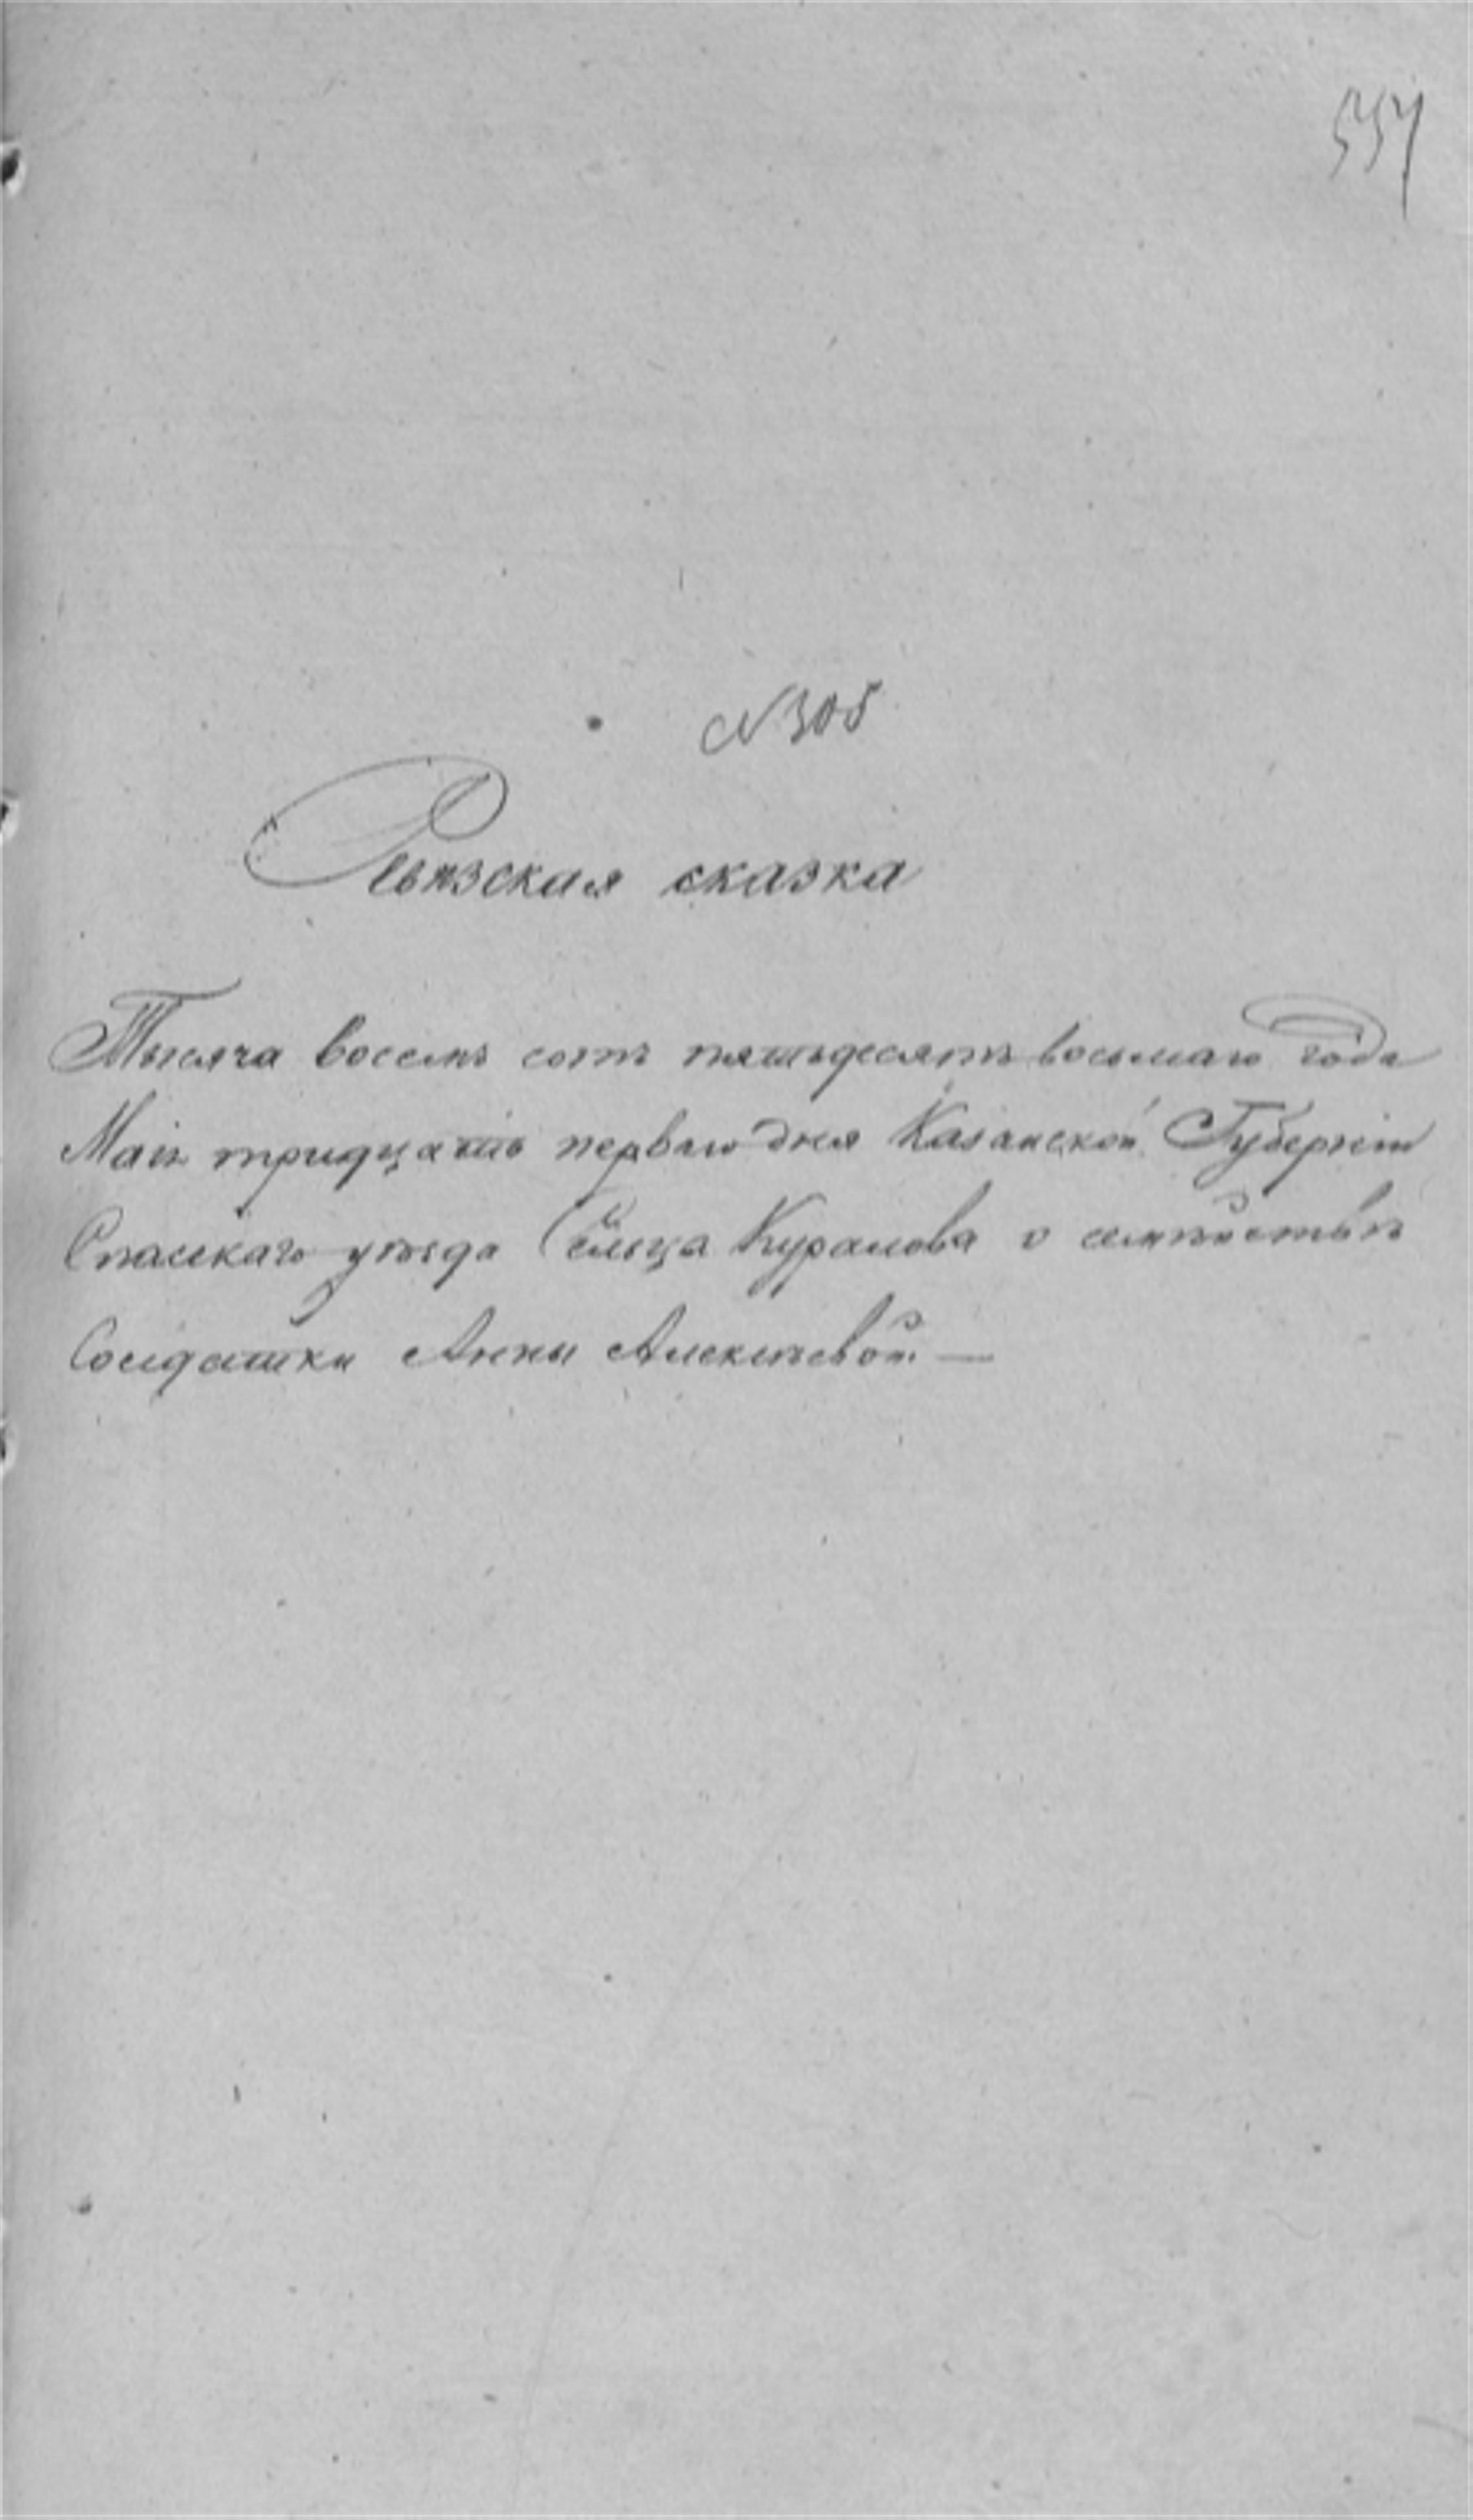 557
№ 305
Ревизская сказка
Тысяча восемь сотъ пятьдесятъ восьмаго года
Маія тридцать перваго дня Казанской Губерніи
Спасскаго уѣзда Сельца Куралова о семействѣ
Солдатки Анны Алексѣевой. —